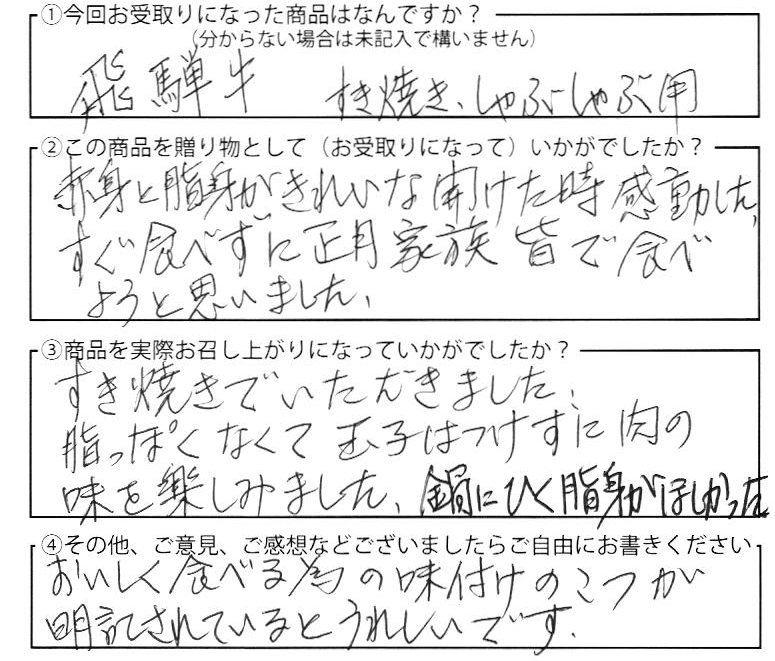 ①今回お受取りになった商品はなんですか？
（分からない場合は未記入で構いません）
飛騨牛 すき焼き、しゃぶしゃぶ用
②この商品を贈り物として（お受取りになって）いかがでしたか？
赤身と脂身がきれいな開けた時感動した、
すぐ食べずに正月家族皆で食べ
ようと思いました、
③商品を実際お召し上がりになっていかがでしたか？
すき焼きでいただきました、
脂っぽくなくて玉子はつけずに肉の
味を楽しみました、鍋にひく脂身がほしかった
④その他、ご意見、ご感想などございましたらご自由にお書きください
おいしく食べる為の味付けのこつが
明記されているとうれしいです.